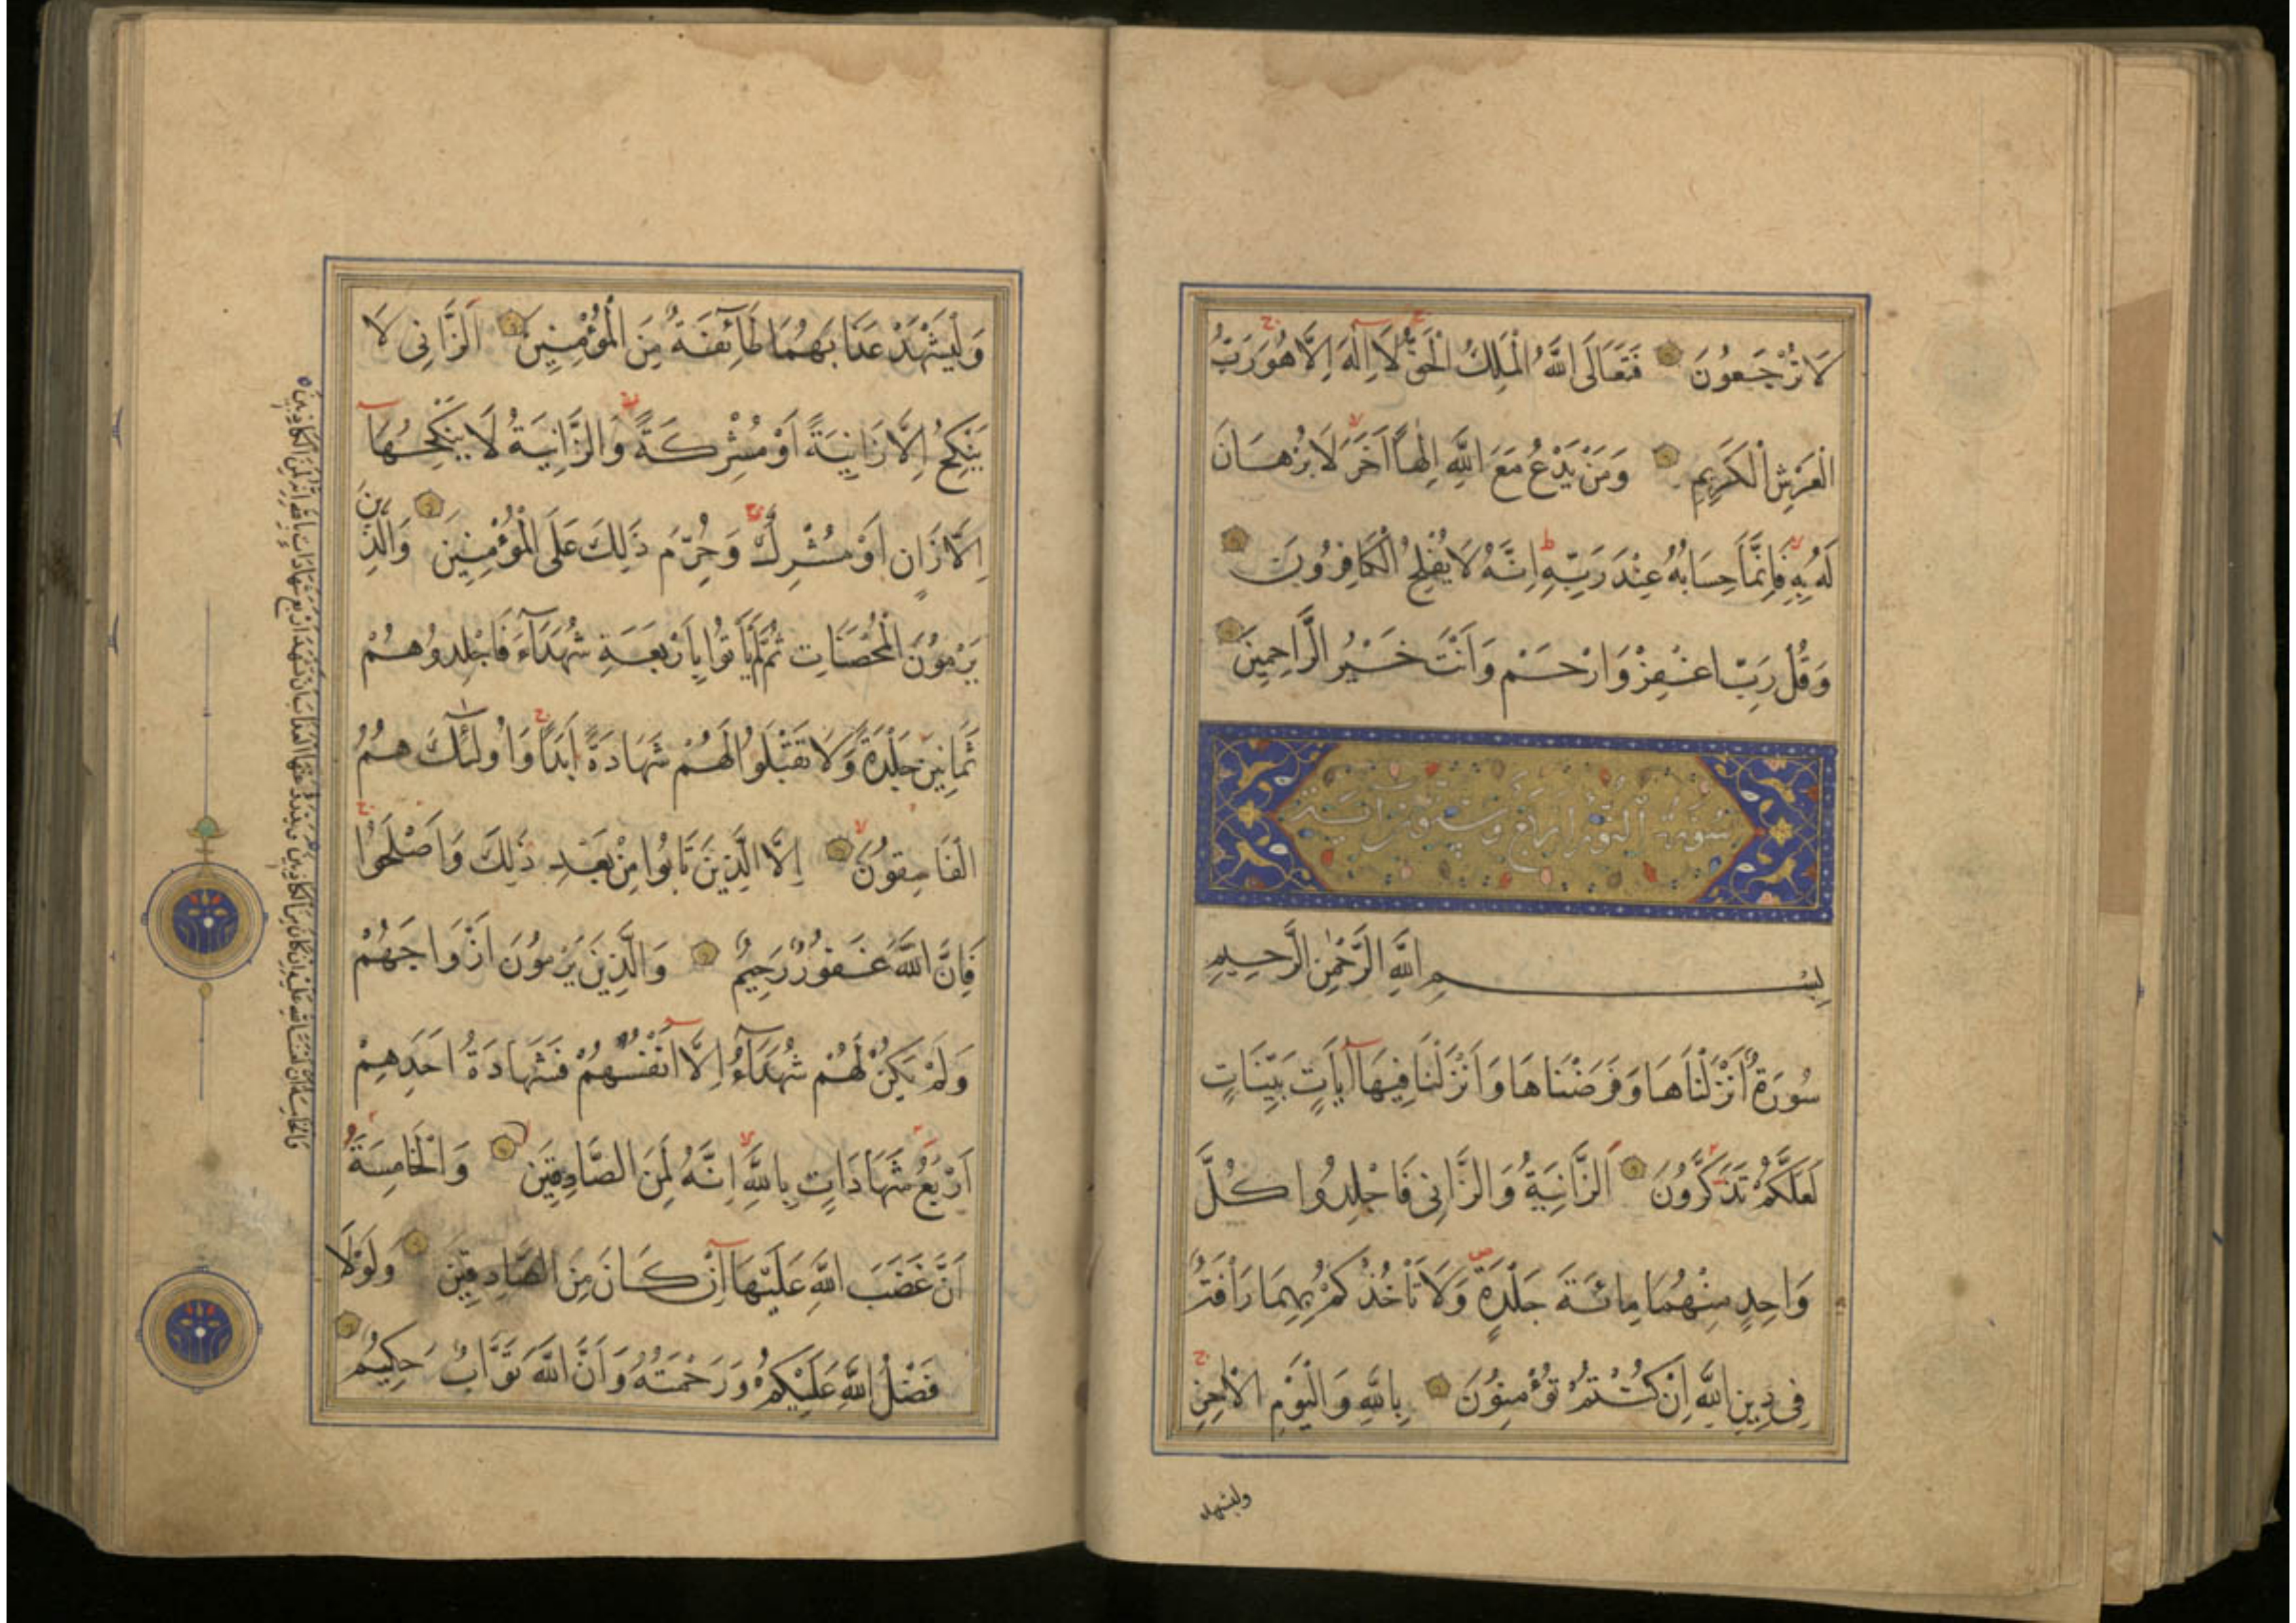 لَا تُرْجَعُونَ فَتَعَالَى اللَّهُ الْمَلِكُ الْحَقُّ لَا اِلَهَ اِلَّا هُوَ رَبُّ
الْعَرْشِ الْكَرِيمِ وَمَنْ يَدْعُ مَعَ اللَّهِ اِلٰهًا آخَرَ لَا بُرْهَانَ
لَهُ بِهِ فَاِنَّمَا حِسَابُهُ عِنْدَ رَبِّهِ اِنَّهُ لَا يُفْلِحُ الْكَافِرُونَ
وَقُلْ رَبِّ اغْفِرْ وَارْحَمْ وَاَنْتَ خَيْرُ الرَّاحِمِينَ
سورة النور اربع وستون آية
بِسْمِ اللَّهِ الرَّحْمٰنِ الرَّحِيمِ
سُورَةٌ اَنْزَلْنَاهَا وَفَرَضْنَاهَا وَاَنْزَلْنَا فِيهَا آيَاتٍ بَيِّنَاتٍ
لَعَلَّكُمْ تَذَكَّرُونَ اَلزَّانِيَةُ وَالزَّانِى فَاجْلِدُوا كُلَّ
وَاحِدٍ مِنْهُمَا مِائَةَ جَلْدَةٍ وَلَا تَأْخُذْكُمْ بِهِمَا رَأْفَةٌ
فِى دِينِ اللَّهِ اِنْ كُنْتُمْ تُؤْمِنُونَ بِاللَّهِ وَالْيَوْمِ الْآخِرِ
وليشهد
وَلْيَشْهَدْ عَذَابَهُمَا طَائِفَةٌ مِنَ الْمُؤْمِنِينَ اَلزَّانِى لَا
يَنْكِحُ اِلَّا زَانِيَةً اَوْ مُشْرِكَةً وَالزَّانِيَةُ لَا يَنْكِحُهَا
اِلَّا زَانٍ اَوْ مُشْرِكٌ وَحُرِّمَ ذَلِكَ عَلَى الْمُؤْمِنِينَ وَالَّذِينَ
يَرْمُونَ الْمُحْصَنَاتِ ثُمَّ لَمْ يَأْتُوا بِاَرْبَعَةِ شُهَدَاءَ فَاجْلِدُوهُمْ
ثَمَانِينَ جَلْدَةً وَلَا تَقْبَلُوا لَهُمْ شَهَادَةً اَبَدًا وَاُولَئِكَ هُمُ
الْفَاسِقُونَ اِلَّا الَّذِينَ تَابُوا مِنْ بَعْدِ ذَلِكَ وَاَصْلَحُوا
فَاِنَّ اللَّهَ غَفُورٌ رَحِيمٌ وَالَّذِينَ يَرْمُونَ اَزْوَاجَهُمْ
وَلَمْ يَكُنْ لَهُمْ شُهَدَاءُ اِلَّا اَنْفُسُهُمْ فَشَهَادَةُ اَحَدِهِمْ
اَرْبَعُ شَهَادَاتٍ بِاللَّهِ اِنَّهُ لَمِنَ الصَّادِقِينَ وَالْخَامِسَةُ
اَنَّ غَضَبَ اللَّهِ عَلَيْهَا اِنْ كَانَ مِنَ الصَّادِقِينَ وَلَوْلَا
فَضْلُ اللَّهِ عَلَيْكُمْ وَرَحْمَتُهُ وَاَنَّ اللَّهَ تَوَّابٌ حَكِيمٌ
والخامسة ان لعنت الله عليه ان كان من الكاذبين ويدرؤا عنها العذاب ان تشهد اربع شهادات بالله انه لمن الكاذبين